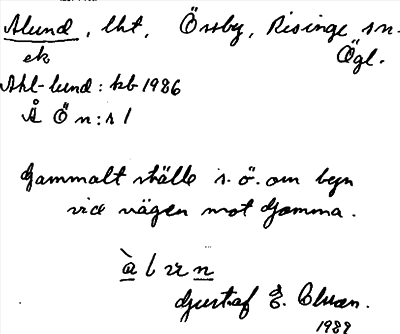 Alund, lht, Örsby, Risinge sn.
ek Ögl.
Ahl-lund: kb 1986
Å Ö n: s 1
Gammalt ställe s. ö. om byn
vid vägen mot Gomma.
Gustaf E. Olsson.
1988